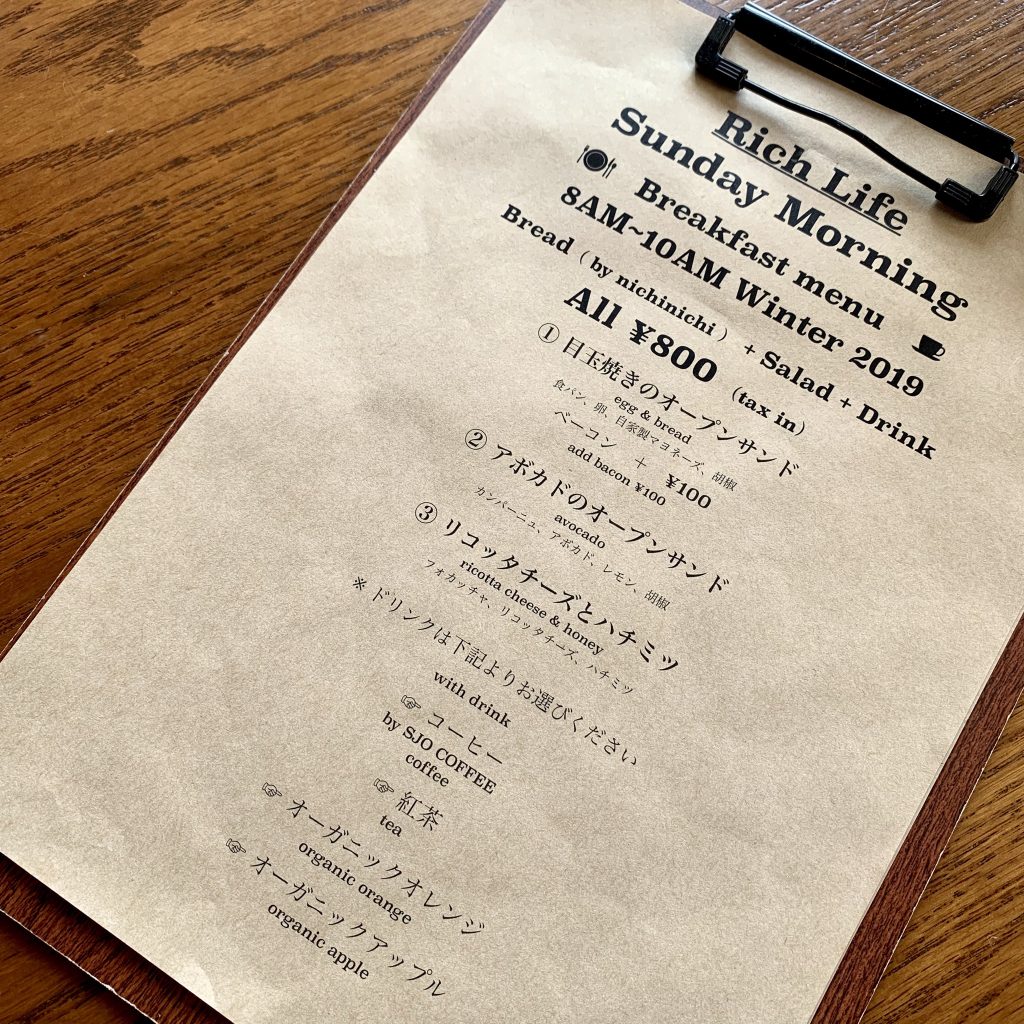 Rich Life
Sunday Morning
Breakfast menu
8AM~10AM Winter 2019
Bread (by nichinichi) + Salad + Drink
All ¥800 (tax in)
① 目玉焼きのオープンサンド
egg & bread
食パン、卵、自家製マヨネーズ、胡椒
ベーコン + ¥100
add bacon ¥100
② アボカドのオープンサンド
avocado
カンパーニュ、アボカド、レモン、胡椒
③ リコッタチーズとハチミツ
ricotta cheese & honey
フォカッチャ、リコッタチーズ、ハチミツ
※ ドリンクは下記よりお選びください
with drink
☞ コーヒー
by SJO COFFEE
coffee
☞ 紅茶
tea
☞ オーガニックオレンジ
organic orange
☞ オーガニックアップル
organic apple